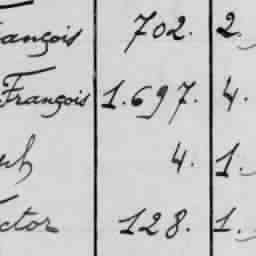 ançois 702. 2.
François 1.697. 4.
ph 4. 1.
ictor 128. 1.